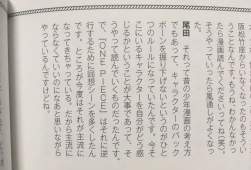 阪松竹座からいなくなったのもそうい
うことなんです。もうね、わかんなかっ
たら漫画読んでくださいってね(笑)。
そうやっていったら見通しがよくなっ
た。
尾田 それって昔の少年漫画の考え方
でもあって、キャラクターのバック
ボーンを掘り下げないというのがひと
つのルールになっていたんです。今そ
こにいるキャラクターを自分がどう感
じるかってことが大事であって、そ
うやって読んでいくものだったんです。
で、『ONE PIECE』はそれに逆
行するために回想シーンを多くしたん
です。ところが今度はそれが主流に
なってきちゃっている。だから主流に
ならなくていいのになあと思いながら
やっているんですけどね。